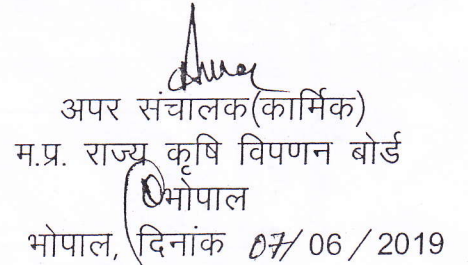 अपर संचालक(कार्मिक)
म.प्र. राज्य कृषि विपणन बोर्ड
भोपाल
भोपाल, दिनांक 07/ 06 / 2019